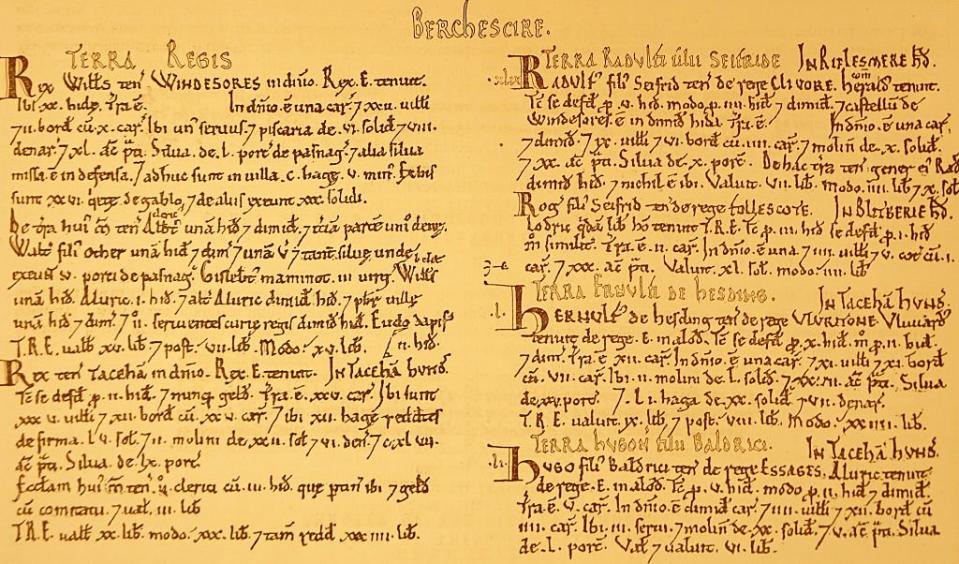 BERCHESCIRE.
TERRA REGIS
Rex Wills ten WINDESORES in dnio. Rex. E. tenuit.
Ibi xx. hide. Tra. ē. In dnio. ē una car. 7 xxii. uilli
7 ii. bord cū. x. car. Ibi un seruus. 7 piscaria de. vi. solid 7 viii.
denar. 7 xl. ac pti. Silua. de. l. porc de pasnag. 7 alia silua
missa. ē in defensa. / adhuc sunt in uilla. c. hagę. v. min. Ex his
sunt xxvi. quietę de gablo. 7 de aliis exeunt xxx. solidi.
De tra hui m ten Albt cleric unā hid 7 dimid. 7 tciā partē uni denę.
Walt fili Other unā hid 7 dim 7 unā v 7 tantū siluę unde
exeunt v. porci de pasnag. Gislebt maminot. iii. uirg. Wills
unā hid. Aluric. i. hid. 7 alt Aluric dimid hid. 7 pbr uillę
unā hid 7 dim. 7 ii. seruientes curię regis dimid hid. Eudo dapif
T.R.E. ualb xv. lib. 7 post. vii. lib. Modo. xv. lib. ii. hid.
Rex ten TACEHĀ in dnio. Rex. E. tenuit. IN TACEHĀ HUND.
Tc se defd p. ii. hid. 7 nunq geld. Tra. ē. xxv. car. Ibi sunt
xxxv. uilli 7 xii. bord cū. xxv. car. 7 ibi xii. hagę reddtes
de firma. lv. sol. 7 ii. molini de. xxii. sol 7 vi. den. 7 cxlvii.
ac pti. Silua. de. lx. porc
Eccłam hui m ten ii. clerici cū. iii. hid. quę ptin ibi 7 geld
cū comitatu. 7 ual. iii. lib
T.R.E. ualb xx. lib. modo. xxx. lib. 7 tam redd xxxiiii. lib.
TERRA RADULFI filii SEIFRIDE IN RIPLESMERE HD.
.xlix. RADULF fili Seifrid ten de rege CLIVORE. herald com tenuit.
Tc se defd. p. v. hid. modo. p. iiii. hid 7 dimid. 7 castellu de
Windesores. ē in dimid hida. Tra. ē. In dnio. ē una car.
7 dimid. 7 ix. uilli 7 vi. bord cū. iiii. car. 7 molin de. x. solid.
7 xx. ac pti. Silua de. x. porc. De hac tra ten gener ei Rad
dimid hid. 7 nichil. ē ibi. Valuit. vii. lib. Modo. iiii. lib 7 x. sol
Rog fili Seifrid ten de rege COLLESCOTE. IN BLITBERIE HD.
Lodric qdā lib ho tenuit T.R.E. Tc p. iii. hid se defd p. i. hid
m similit. Tra. ē. ii. car. In dnio. ē una. 7 iiii. uilli 7 v. cot cū. i.
car. 7 xxx. ac pti. Valuit. xl. sol. modo. iiii. lib
TERRA ERNULFI DE HESDING. IN TACEHĀ HUND.
.l. HERNULF de hesding ten de rege ULVRITONE. Uluuard
tenuit de rege. E. in alod. Tc se defd p. x. hid. m p. ii. hid.
7 dim. Tra. ē. xii. car. In dnio. ē una car. 7 xi. uilli 7 xi. bord
cū. vii. car. Ibi. ii. molini de. l. solid. 7 xxvii. ac pti. Silua
de. xxv. porc. 7. Li. haga de. xx. solid 7 vii. denar.
T.R.E. ualuit. ix. lib. 7 post. viii. lib. Modo. xxiiii. lib.
TERRA HUGON filii BALDRICI. IN TACEHĀ HUND.
.li. HUGO fili Baldrici ten de rege ESSAGES. Aluric tenuit
de rege. E. in alod. Tc p. v. hid. modo p. ii. hid 7 dimid.
Tra. ē. v. car. In dnio. ē dimid car. 7 iiii. uilli 7 xii. bord cū
iiii. car. Ibi. iii. serui. 7 molin de. xx. solid. 7 v. ac pti. Silua
de. l. porc. Val 7 ualuit. vi. lib.